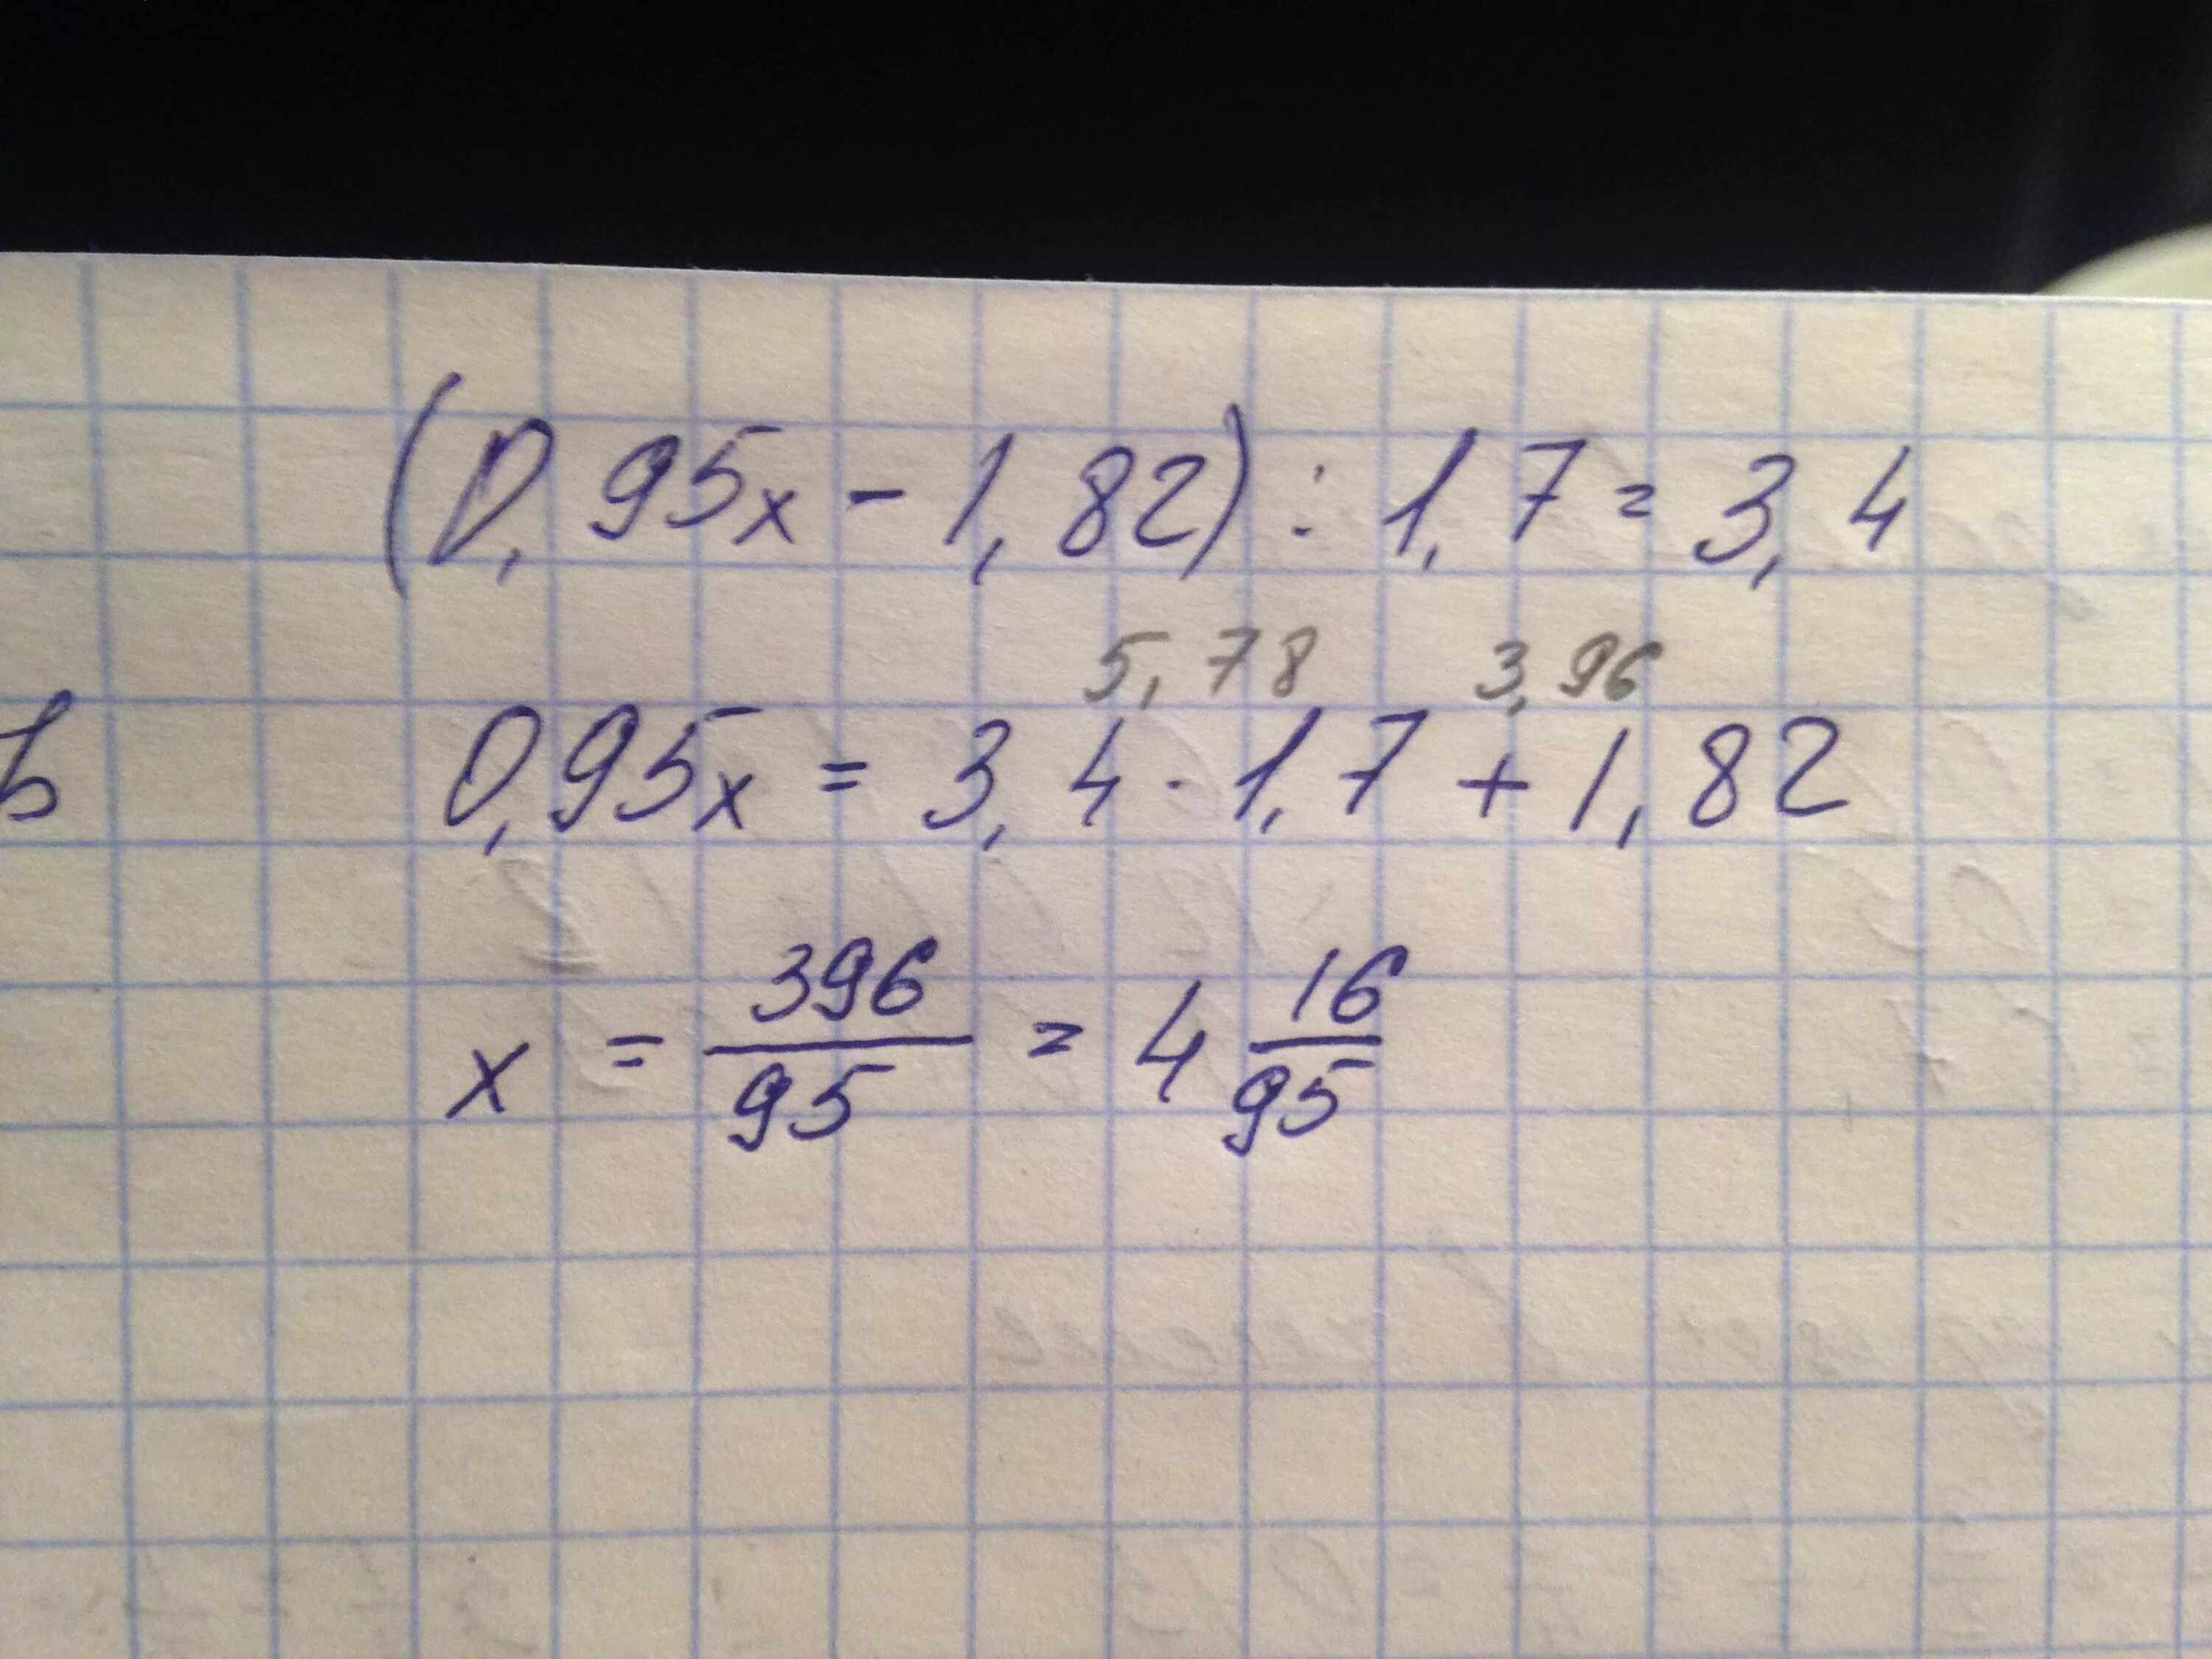 (0,95x - 1,82) : 1,7 = 3,4
5,78 3,96
0,95x = 3,4 · 1,7 + 1,82
x = 396/95 = 4 16/95